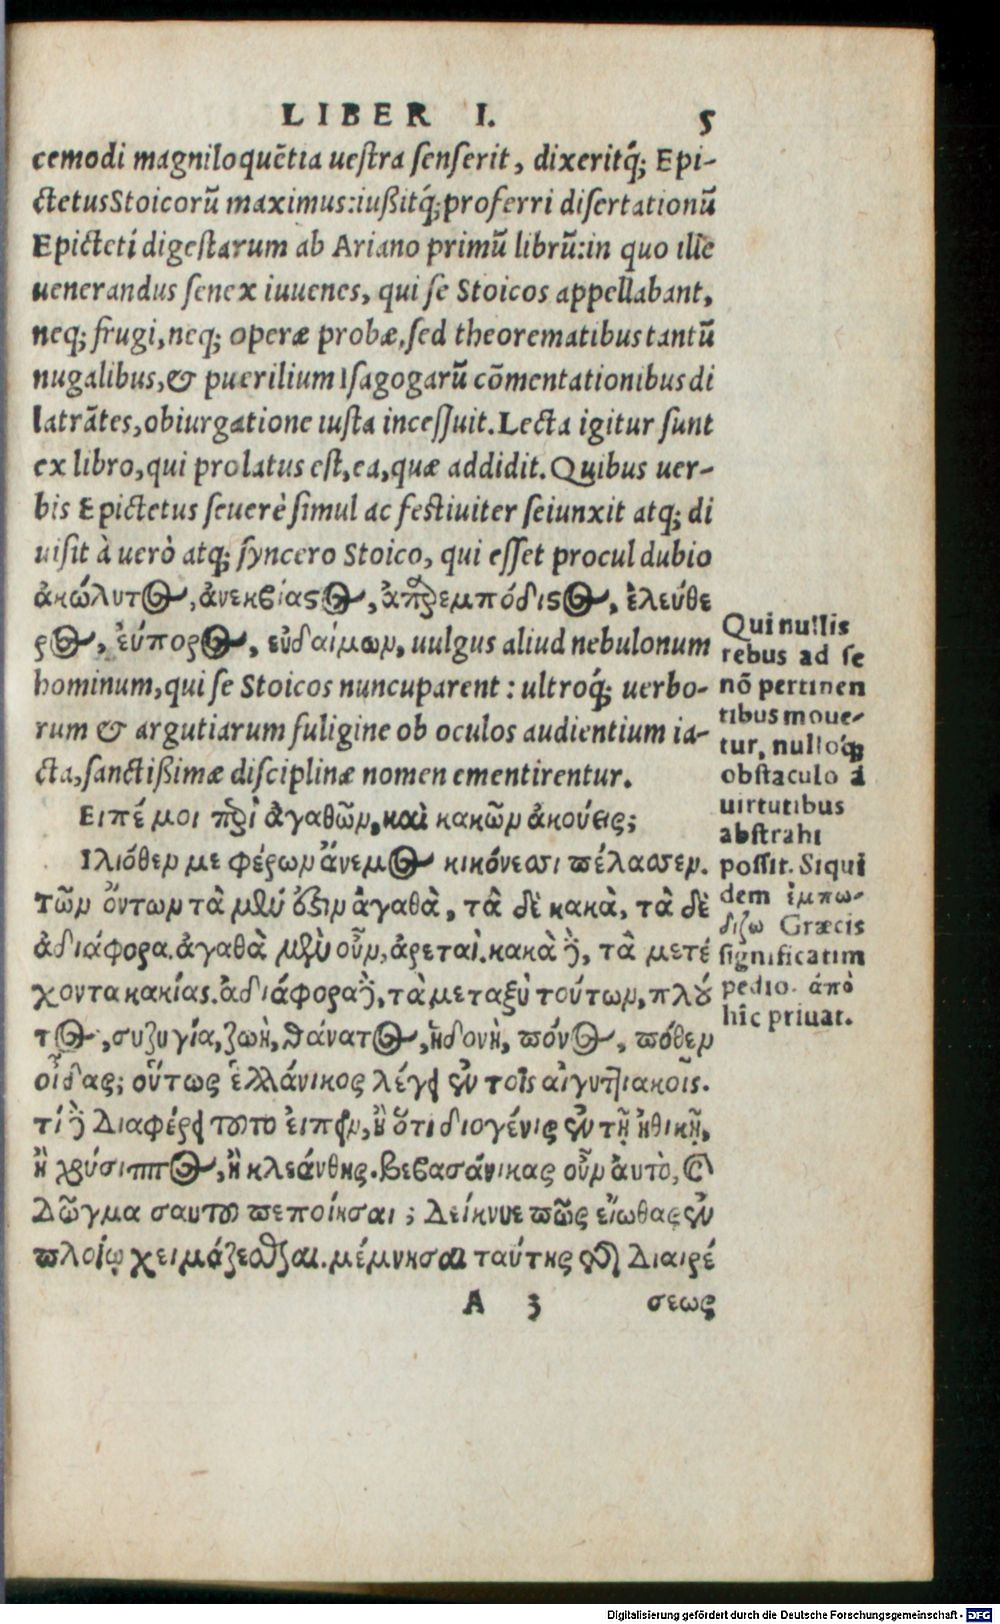 LIBER I. 5
cemodi magniloquẽtia uestra senserit, dixeritq́; Epi-
ctetus Stoicorũ maximus: iußitq́; proferri disertationũ
Epicteti digestarum ab Ariano primũ librũ: in quo ille
uenerandus senex iuuenes, qui se Stoicos appellabant,
neq; frugi, neq; operæ probæ, sed theorematibus tantũ
nugalibus, & puerilium Isagogarũ cõmentationibus di
latrãtes, obiurgatione iusta incessuit. Lecta igitur sunt
ex libro, qui prolatus est, ea, quæ addidit. Quibus uer-
bis Epictetus seuerè simul ac festiuiter seiunxit atq; di
uisit à uerò atq; syncero Stoico, qui esset procul dubio
ἀκώλυτος, ἀνεκβίαςος, ἀπαρεμπόδιςος, ἐλεύθε
ρος, ἐύπορος, εὐδαίμων, uulgus aliud nebulonum
hominum, qui se Stoicos nuncuparent: ultroq́; uerbo-
rum & argutiarum fuligine ob oculos audientium ia-
cta, sanctißimæ disciplinæ nomen ementirentur.
Ειπέ μοι περὶ ἀγαθῶν, καὶ κακῶν ἀκούεις;
Ιλιόθεν με φέρων ἄνεμος κικόνεσσι πέλασσεν.
τῶν ὄντων τὰ μὲν ὅξιν ἀγαθὰ, τὰ δὲ κακὰ, τὰ δὲ
ἀδιάφορα. ἀγαθὰ μὲν οὖν, ἀρεταὶ. κακὰ δὲ, τὰ μετέ
χοντα κακίας. ἀδιάφορα δὲ, τὰ μεταξὺ τούτων, πλοῦ
τος, συζυγία, ζωὴ, θάνατος, ἡδονὴ, πόνος, πόθεν
οἶδας; οὕτως ἑλλάνικος λέγει ἐν τοῖς αἰγυπτιακοῖς.
τί δὲ Διαφέρει τοῦτο ἐιπεῖν, ἢ ὅτι διογένις ἐν τῇ ἠθικῇ,
ἢ χρύσιππος, ἢ κλεάνθης. βεβασάνικας οὖν ἀυτὸ, καὶ
Δῶγμα σαυτοῦ πεποίησαι; Δείκνυε πῶς εἴωθας ἐν
πλοίῳ χειμάζεσθαι. μέμνησαι ταύτης τῆς Διαιρέ
A 3 σεως
Qui nullis
rebus ad se
nõ pertinen
tibus moue-
tur, nulloq́;
obstaculo à
uirtutibus
abstrahi
possit. Siqui
dem ἐμπω-
διζω Græcis
significatim
pedio. ἀπὸ
hîc priuat.
Digitalisierung gefördert durch die Deutsche Forschungsgemeinschaft - DFG